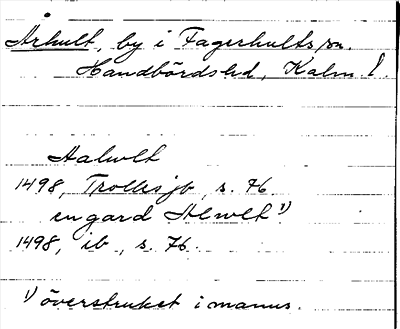 Århult, by i Fagerhults sn.
Handbörds hd, Kalm. l.
Aalwlt
1498, Trolles jb, s. 76.
en gard Alwlt 1)
1498, ib., s. 76.
1) överstruket i manus.